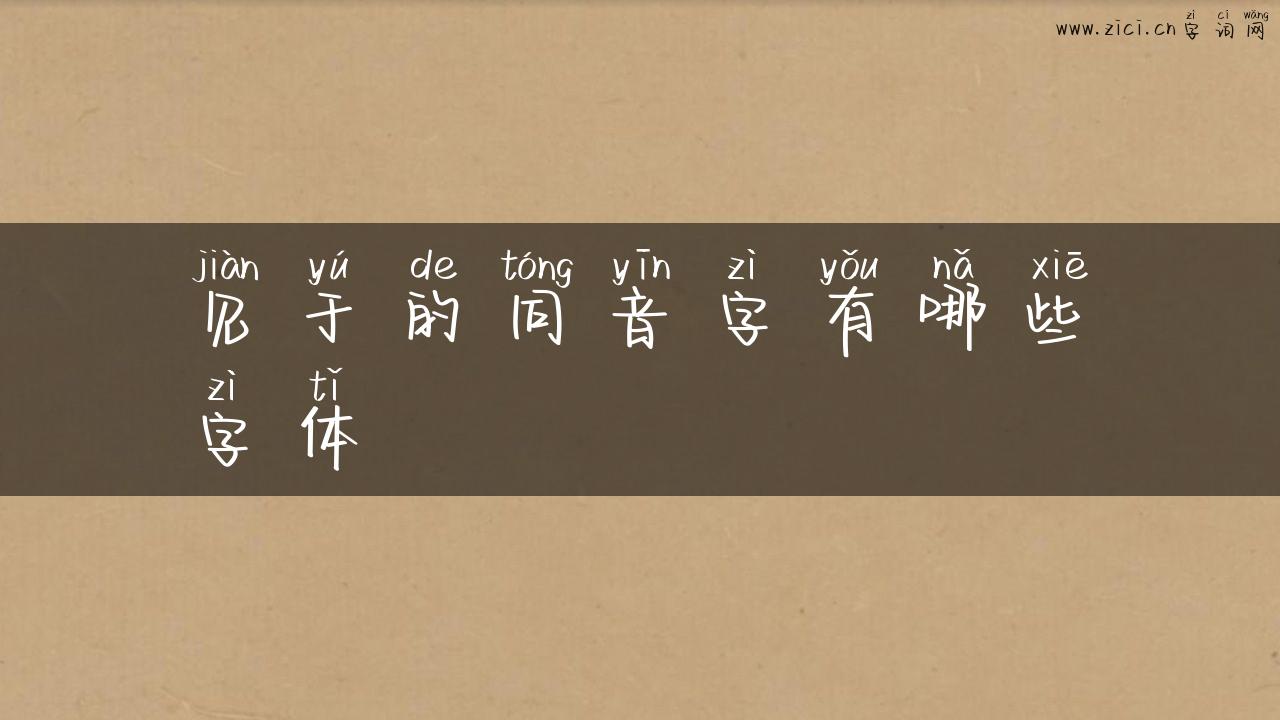 zì cí wǎng
www.zici.cn 字词网
jiàn yú de tóng yīn zì yǒu nǎ xiē
见于的同音字有哪些
zì tǐ
字体